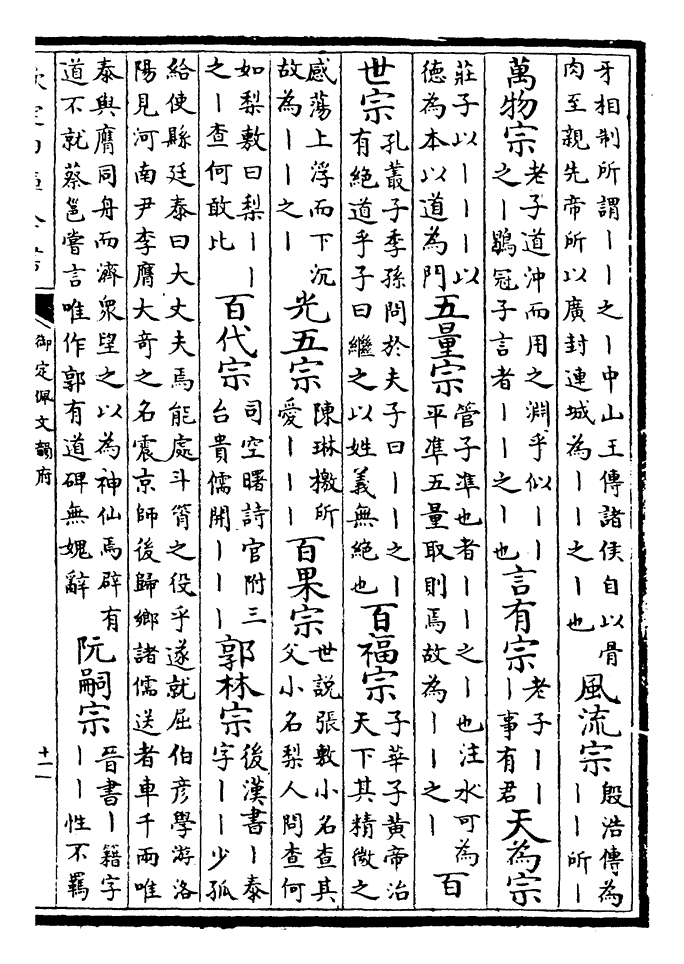 牙相制所謂丨丨之丨中山王傳諸侯自以骨
肉至親先帝所以廣封連城為丨丨之丨也
風流宗
殷浩傳為
丨丨所丨
萬物宗
老子道沖而用之淵乎似丨丨
之丨鶡冠子言者丨丨之丨也
言有宗
老子丨丨
丨事有君
天為宗
莊子以丨丨丨以
德為本以道為門
五量宗
管子準也者丨丨之丨也注水可為
平準五量取則焉故為丨丨之丨
百
世宗
孔叢子季孫問於夫子曰丨丨之丨
有絕道乎子曰繼之以姓義無絕也
百福宗
子華子黃帝治
天下其精微之
感蕩上浮而下沉
故為丨丨之丨
光五宗
陳琳檄所
愛丨丨丨
百果宗
世説張敷小名查其
父小名梨人問查何
如梨敷曰梨丨丨
之丨查何敢比
百代宗
司空曙詩官附三
台貴儒開丨丨丨
郭林宗
後漢書丨泰
字丨丨少孤
給使縣廷泰曰大丈夫焉能處斗筲之役乎遂就屈伯彦學游洛
陽見河南尹李膺大奇之名震京師後歸鄉諸儒送者車千兩唯
泰與膺同舟而濟衆望之以為神仙焉辟有
道不就蔡邕嘗言唯作郭有道碑無媿辭
阮嗣宗
晉書丨籍字
丨丨性不羈
欽定四庫全書
御定佩文韻府
十一